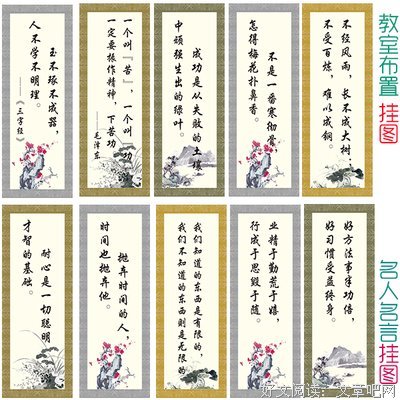 教室布置 挂图
不经风雨，长不成大树，
不受百炼，难以成钢。
不是一番寒彻骨，
怎得梅花扑鼻香。
成功是从失败的土壤
中顽强生出的绿叶。
一个叫“苦”，一个叫“功”
一定要振作精神，下苦功
毛泽东
玉不琢不成器，
人不学不明理。
——《三字经》
名人名言 挂图
好方法事半功倍，
好习惯受益终身。
业精于勤荒于嬉，
行成于思毁于随。
我们知道的东西是有限的，
我们不知道的东西则是无限的。
抛弃时间的人，
时间也抛弃他。
耐心是一切聪明
才智的基础。
好文阅读：文章吧网